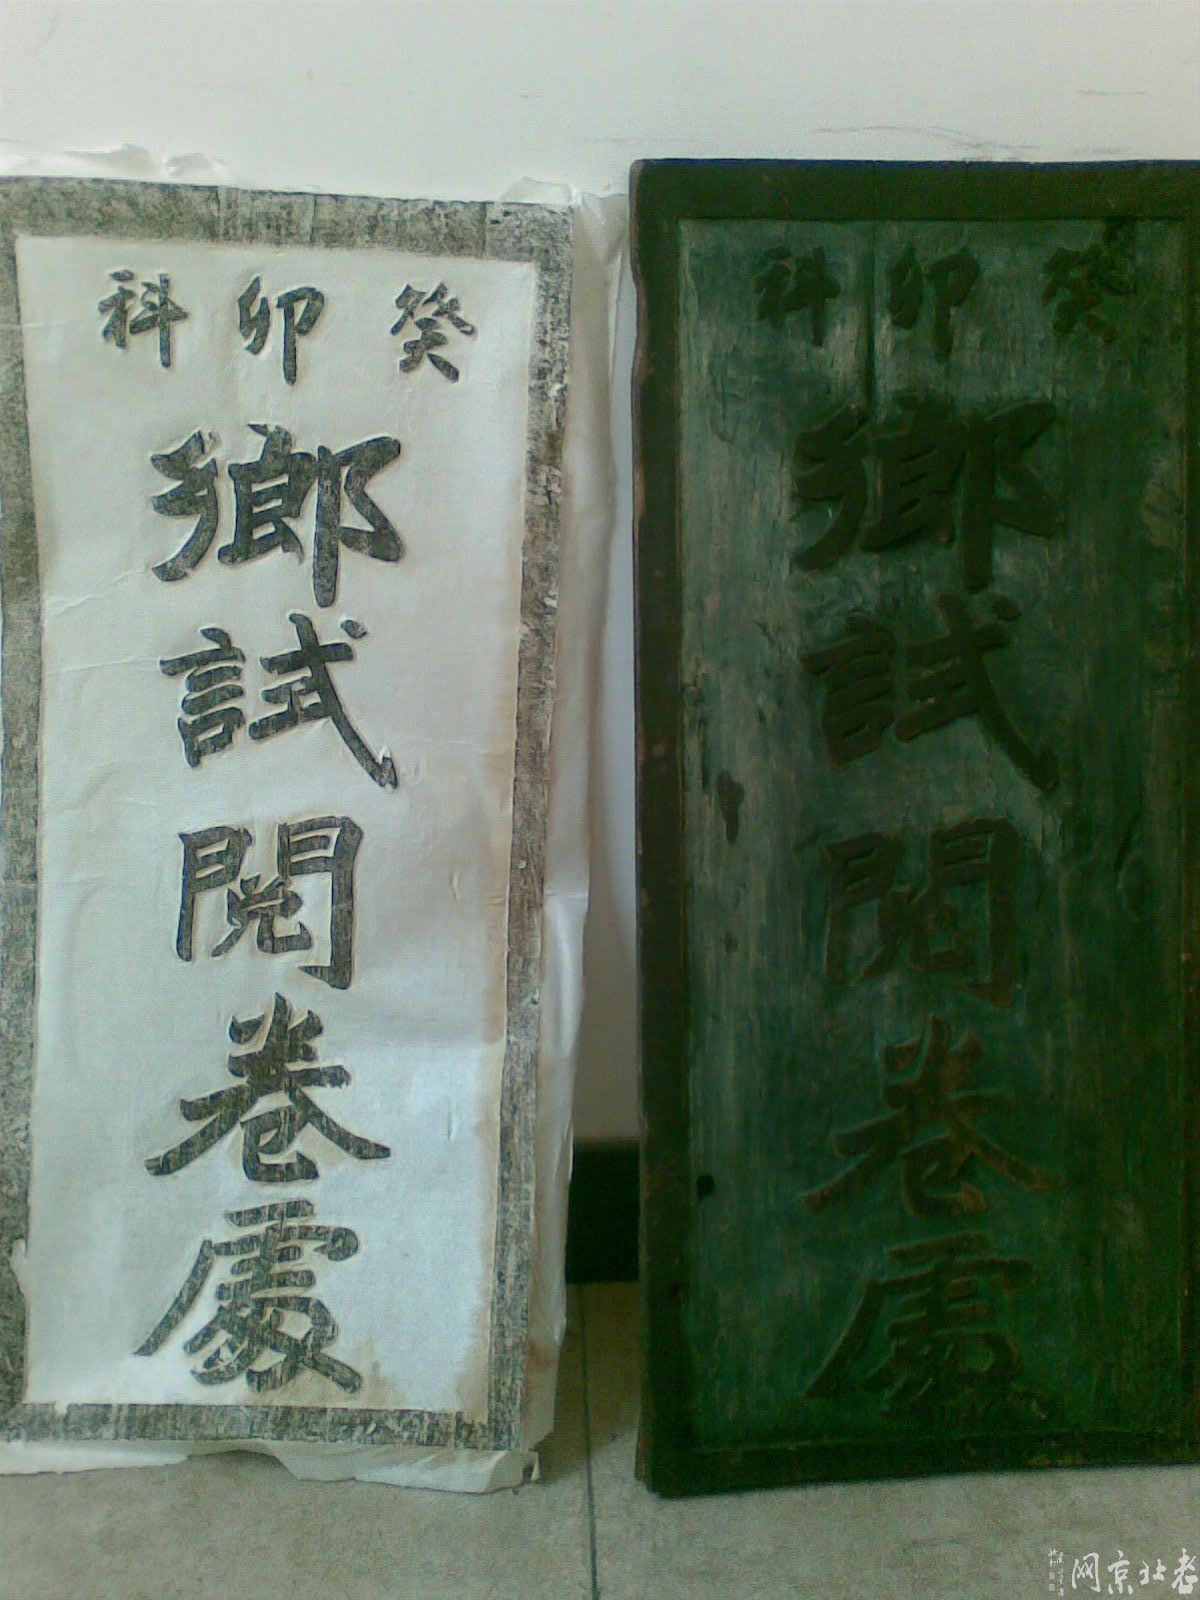 癸卯科
鄉試閱卷處
癸卯科
鄉試閱卷處
老北京网